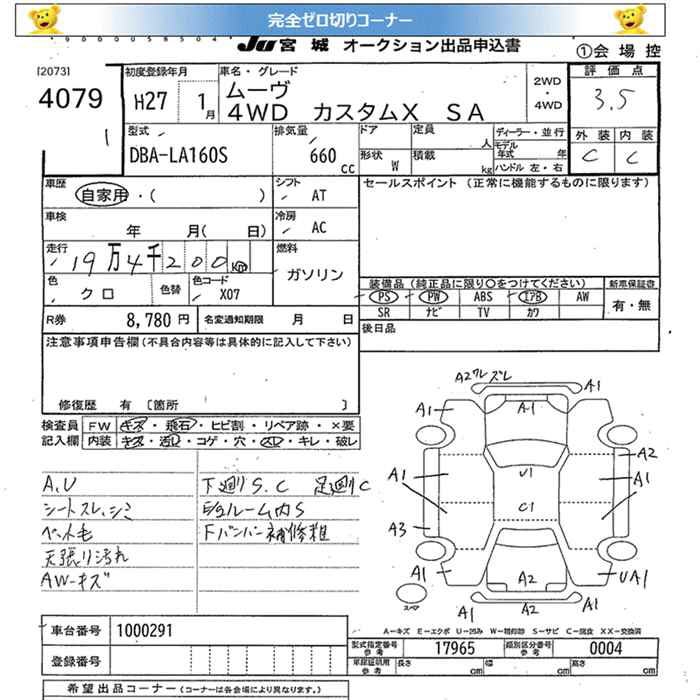 完全ゼロ切りコーナー
JU宮城 オークション出品申込書
①会場控
[2073]
4079
1
初度登録年月
H27 1月
車名・グレード
ムーヴ
4WD カスタムX SA
2WD
・
4WD
評価点
3.5
外装 内装
C C
型式
DBA-LA160S
排気量
660 cc
ドア 定員 人
形状 W 積載 kg
ディーラー・並行
モデル年式 年
ハンドル 左・右
車歴
自家用・( )
シフト
AT
セールスポイント (正常に機能するものに限ります)
車検
年 月( 日)
冷房
AC
走行
19万4千200km
燃料
ガソリン
色
クロ
色替
色コード
X07
装備品 (純正品に限り○をつけてください)
新車保証書
PS PW ABS エアB AW
有・無
SR ナビ TV カワ
R券 8,780 円
名変通知期限 月 日
後日品
注意事項申告欄 (不具合内容等は具体的に記入して下さい)
修復歴 有 [箇所 ]
検査員記入欄
FW キズ・飛石・ヒビ割・リペア跡・×要
内装 キズ・汚レ・コゲ・穴・スレ・キレ・破レ
A,U
シートスレ,シミ
ペット毛
天張り汚れ
AW-キズ
下廻りS.C 足廻りC
Fバンパー補修雑
A2ワレズレ A1
A1 A1
A2
A1 U1 A1
C1
A3
A1 A2 UA1
スペア
A1 A2 A1
A-キズ E-エクボ U-凹み W-補修跡 S-サビ C-腐食 XX-交換済
車台番号 1000291
登録番号
型式指定番号 参考 17965
類別区分番号 参考 0004
車庫証明用 参考 長さ cm 幅 cm 高さ cm
希望出品コーナー (コーナーは各会場により異なります。)